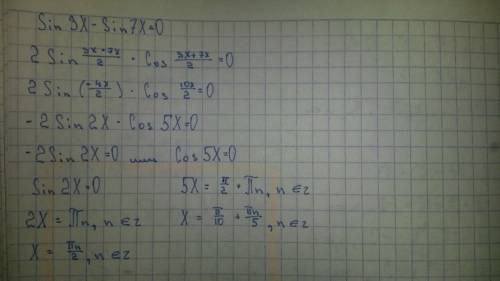 Sin 3X - Sin 7X = 0
2 Sin (3x - 7x)/2 · Cos (3x + 7x)/2 = 0
2 Sin (-4x/2) · Cos 10x/2 = 0
-2 Sin 2X · Cos 5X = 0
-2 Sin 2X = 0 или Cos 5X = 0
Sin 2X = 0 5X = π/2 + πn, n ∈ z
2X = πn, n ∈ z X = π/10 + πn/5, n ∈ z
X = πn/2, n ∈ z